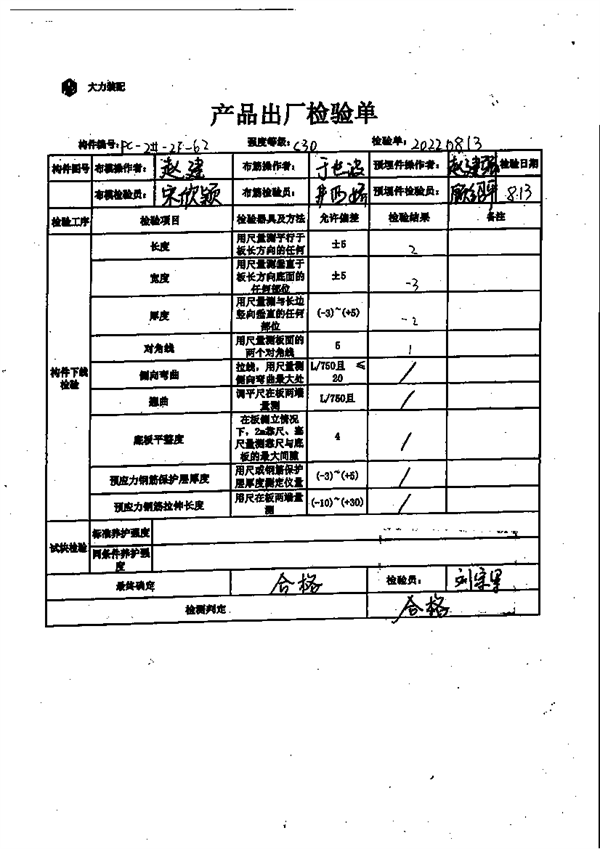 大力装配
产品出厂检验单
构件编号: PC-2#-2F-62 强度等级: C30 检验单: 20220813
构件图号 布模操作者: 赵建 布筋操作者: 预埋件操作者: 赵建强 检验日期
布模检验员: 宋欣颖 布筋检验员: 预埋件检验员: 8.13
检验工序 检验项目 检验器具及方法 允许偏差 检验结果 备注
构件下线检验
长度 用尺量测平行于板长方向的任何 ±5 2
宽度 用尺量测垂直于板长方向底面的任何部位 ±5 -3
厚度 用尺量测与长边竖向垂直的任何部位 (-3)~(+5) -2
对角线 用尺量测板面的两个对角线 5 1
侧向弯曲 拉线,用尺量测侧向弯曲最大处 L/750且 ≤20 /
翘曲 调平尺在板两端量测 L/750且 /
底板平整度 在板侧立情况下,2m靠尺、塞尺量测靠尺与底板的最大间隙 4 /
预应力钢筋保护层厚度 用尺或钢筋保护层厚度测定仪量 (-3)~(+5) /
预应力钢筋拉伸长度 用尺在板两端量测 (-10)~(+30) /
试块检验 标准养护强度
同条件养护强度
最终确定 合格 检验员:
检测判定 合格